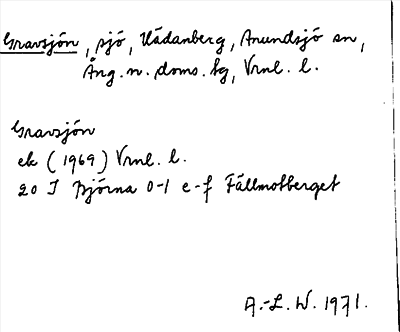 Gravsjön, sjö, Uådanberg, Anundsjö sn,
Ång. n. doms. fg, Vrnl. l.
Gravsjön
ek (1969) Vrnl. l.
20 I Björna 0-1 e-f Fällmotberget
A.-L. W. 1971.